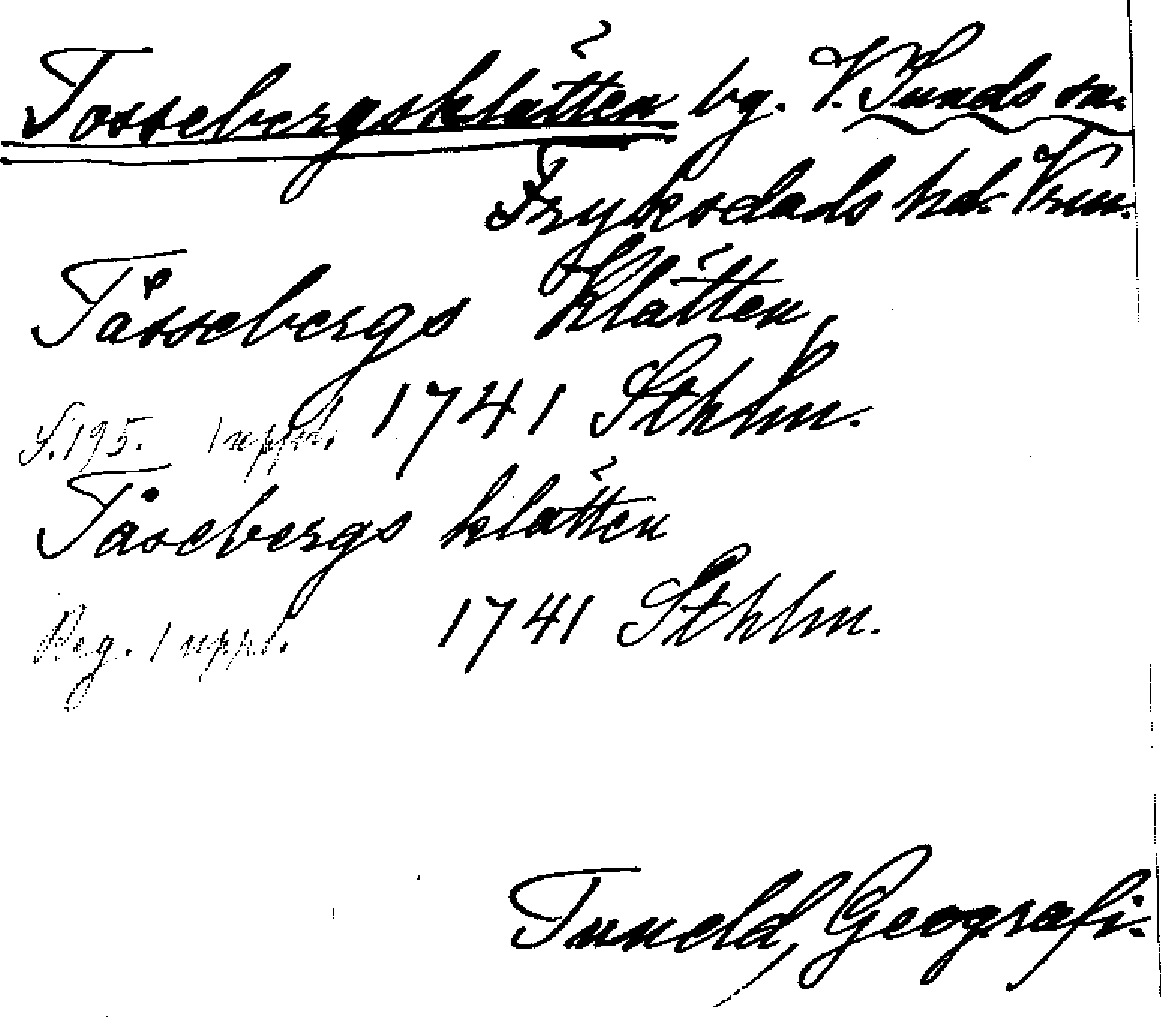 Tossebergsklätten bg. V. Sunds sn.
Fryksdals hd. Vrm.
Tåssebergs Klätten,
S. 195. 1 uppl. 1741 Sthlm.
Tåsebergs klätten
Reg. 1 uppl. 1741 Sthlm.
Tuneld, Geografi.